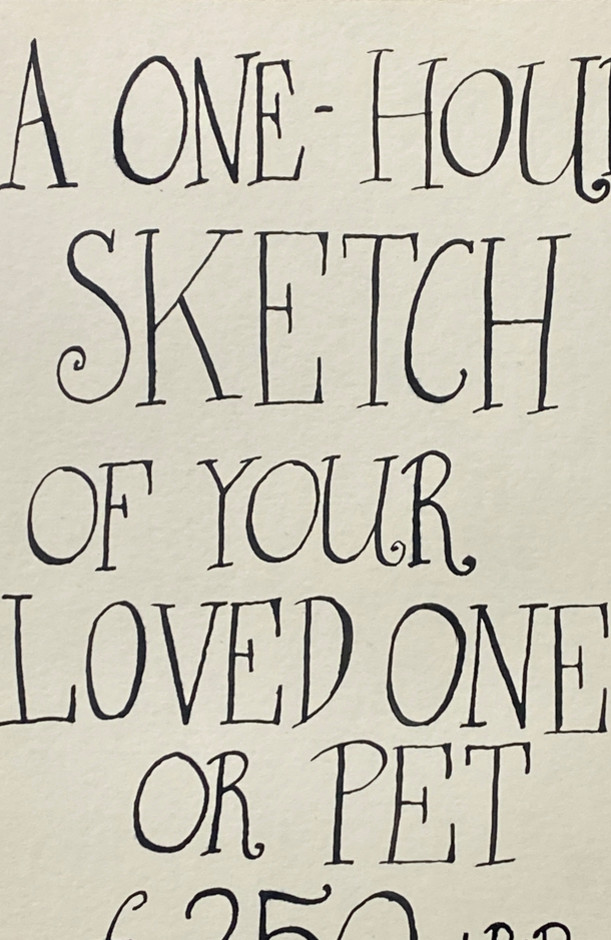 A ONE-HOUR
SKETCH
OF YOUR
LOVED ONE
OR PET
£250